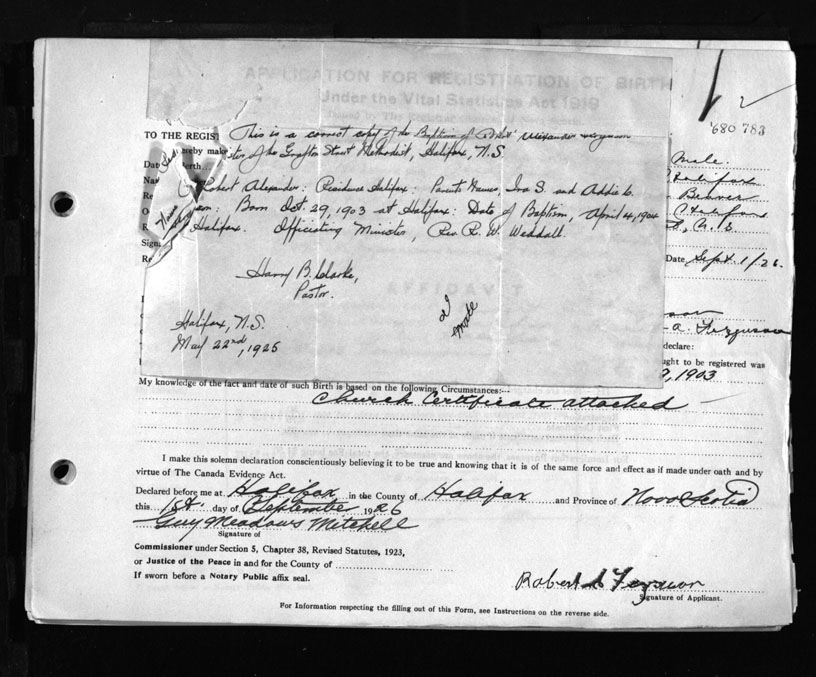 APPLICATION FOR REGISTRATION OF BIRTH
Under the Vital Statistics Act 1919
2
680 783
TO THE REGIST
This is a correct copy of the Baptism of Robt Alexander Ferguson
ereby make
ister of the Grafton Street Methodist, Halifax, N.S.
Male.
Date
erth
Halifax
Robert Alexander: Residence Halifax: Parents Names, Ira S. and Addie C.
Beaver
Born Oct. 29, 1903 at Halifax: Date of Baptism, April 4, 1904
Halifax. Officiating Minister, Rev. R. W. Weddall.
Sign
Date Sept. 1/26.
Harry B. Clarke,
Pastor.
AFFIDAVIT
Male
a. Ferguson
Halifax, N.S.
declare:
May 22nd, 1925
ught to be registered was
9, 1903
My knowledge of the fact and date of such Birth is based on the following Circumstances:—
Church Certificate attached
I make this solemn declaration conscientiously believing it to be true and knowing that it is of the same force and effect as if made under oath and by
virtue of The Canada Evidence Act.
Declared before me at Halifax in the County of Halifax and Province of Nova Scotia
this 1st. day of September 1926
Guy Meadows Mitchell
Signature of
Commissioner under Section 5, Chapter 38, Revised Statutes, 1923,
or Justice of the Peace in and for the County of
If sworn before a Notary Public affix seal.
Robert A Ferguson
Signature of Applicant.
For Information respecting the filling out of this Form, see Instructions on the reverse side.